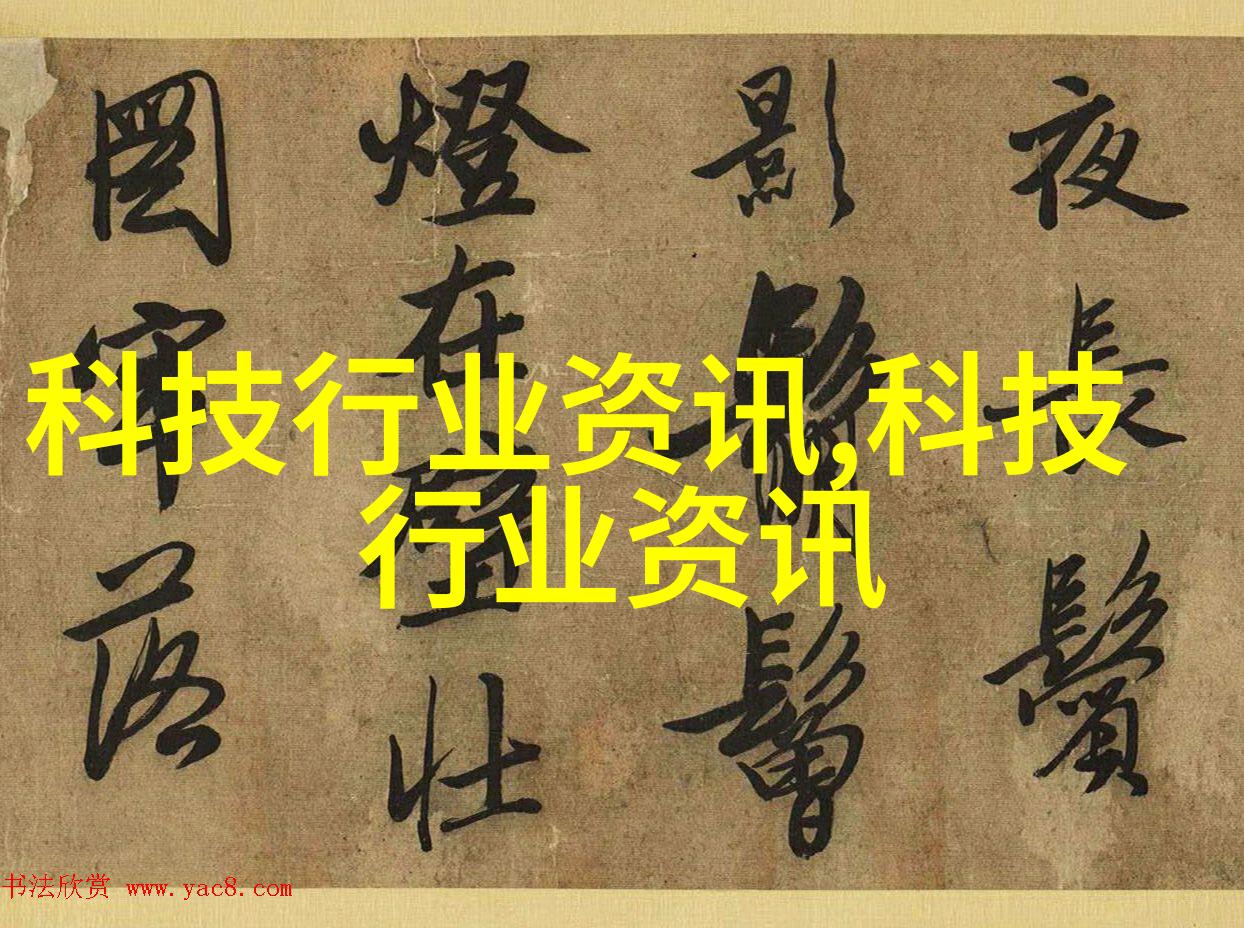 夜長鬢
影鬅鬙
燈在壁壯
圖牢落
科技行业资讯,科技
行业资讯
书法欣赏 www.yac8.com